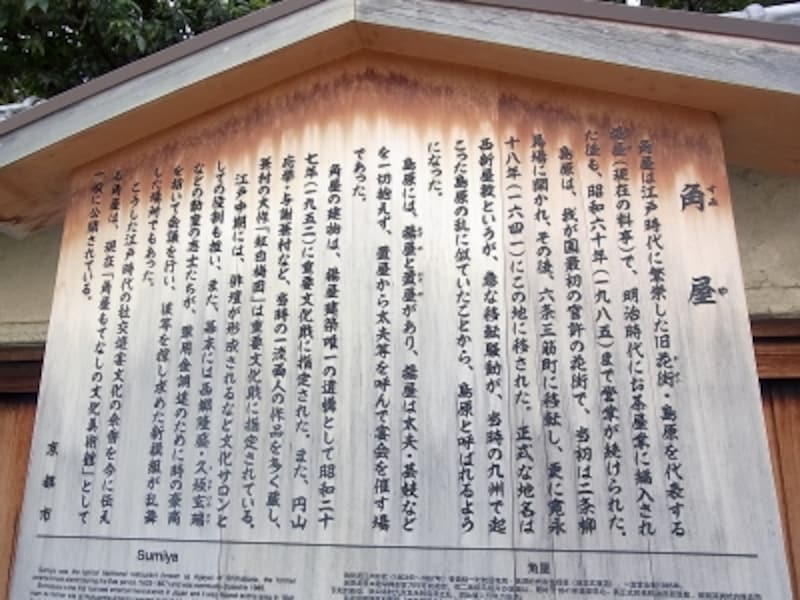 角屋
すみ や
角屋は江戸時代に繁栄した旧花街・島原を代表する
揚屋(現在の料亭)で、明治時代にお茶屋業に編入され
た後も、昭和六十年(一九八五)まで営業が続けられた。
島原は、我が国最初の官許の花街で、当初は二条柳
馬場に開かれ、その後、六条三筋町に移転し、更に寛永
十八年(一六四一)にこの地に移された。正式な地名は
西新屋敷というが、急な移転騒動が、当時の九州で起
こった島原の乱に似ていたことから、島原と呼ばれるよう
になった。
島原には、揚屋と置屋があり、揚屋は太夫・芸妓など
を一切抱えず、置屋から太夫等を呼んで宴会を催す場
であった。
角屋の建物は、揚屋建築唯一の遺構として昭和二十
七年(一九五二)に重要文化財に指定された。また、円山
応挙・与謝蕪村など、当時の一流画人の作品を多く蔵し、
蕪村の大作「紅白梅図」は重要文化財に指定されている。
江戸中期には、俳壇が形成されるなど文化サロンと
しての役割も担い、また、幕末には西郷隆盛・久坂玄瑞
などの勤皇の志士たちが、軍用金調達のために時の豪商
を招いて会議を行い、彼等を探し求めた新撰組が乱舞
した場所でもあった。
こうした江戸時代の社交遊宴文化の余香を今に伝え
る角屋は、現在「角屋もてなしの文化美術館」として
一般に公開されている。
京都市
Sumiya
角屋